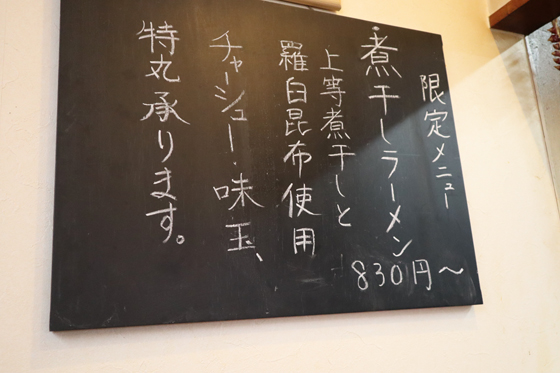 限定メニュー
煮干しラーメン
830円〜
上等煮干しと
羅臼昆布使用
チャーシュー・味玉、
特丸承ります。